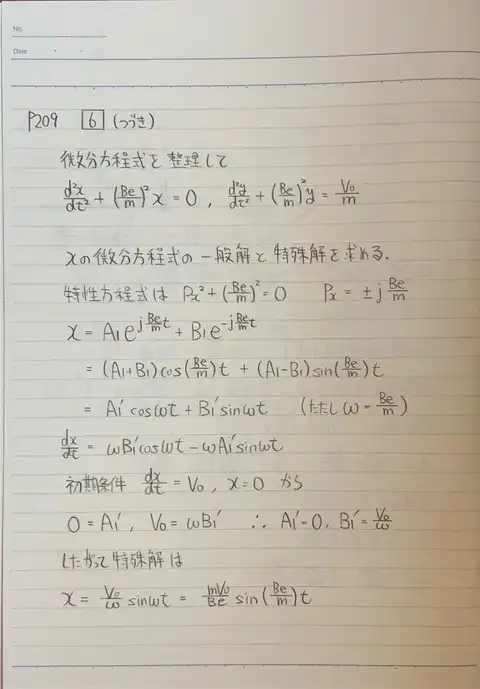 No.
Date
P209 [6] (つづき)
微分方程式を整理して
d²x/dt² + (Be/m)² x = 0 , d²y/dt² + (Be/m)² y = V₀/m
xの微分方程式の一般解と特殊解を求める.
特性方程式は Px² + (Be/m)² = 0 Px = ± j Be/m
x = A₁e^(j(Be/m)t) + B₁e^(-j(Be/m)t)
= (A₁+B₁)cos(Be/m)t + (A₁-B₁)sin(Be/m)t
= A₁′cosωt + B₁′sinωt (ただしω = Be/m)
dx/dt = ωB₁′cosωt - ωA₁′sinωt
初期条件 dx/dt = V₀ , x=0 から
0 = A₁′ , V₀ = ωB₁′ ∴ A₁′=0, B₁′=V₀/ω
したがって特殊解は
x = V₀/ω sinωt = mV₀/Be sin(Be/m)t